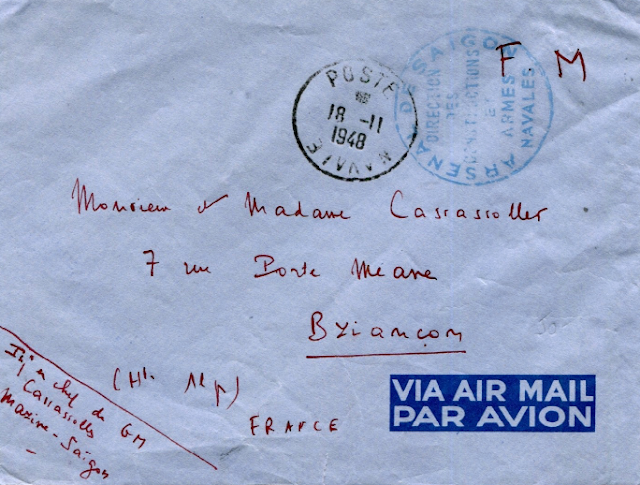 POSTE
18 -11
1948
NAVALE
ARSENAL DE SAIGON
DIRECTION
DES
CONSTRUCTIONS
ET
ARMES
NAVALES
F M
Monsieur & Madame Cassassolles
7 rue Porte Meane
Briançon
(Htes Alp)
FRANCE
Ing en chef du GM
Cassassolles
Marine-Saïgon
VIA AIR MAIL
PAR AVION